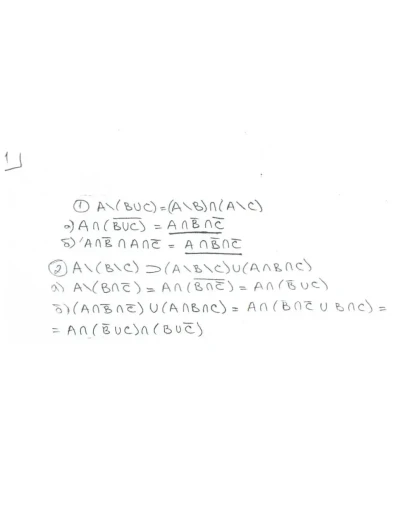 1
① A\(B∪C)=(A\B)∩(A\C)
а) A∩(B̅∪̅C̅) = A∩B̅∩C̅
б) A∩B̅∩A∩C̅ = A∩B̅∩C̅
② A\(B\C)⊃(A\B\C)∪(A∩B∩C)
а) A\(B∩C̅) = A∩(B̅∩̅C̅) = A∩(B̅∪C)
б) (A∩B̅∩C̅)∪(A∩B∩C) = A∩(B̅∩C̅∪B∩C) =
= A∩(B̅∪C)∩(B∪C̅)